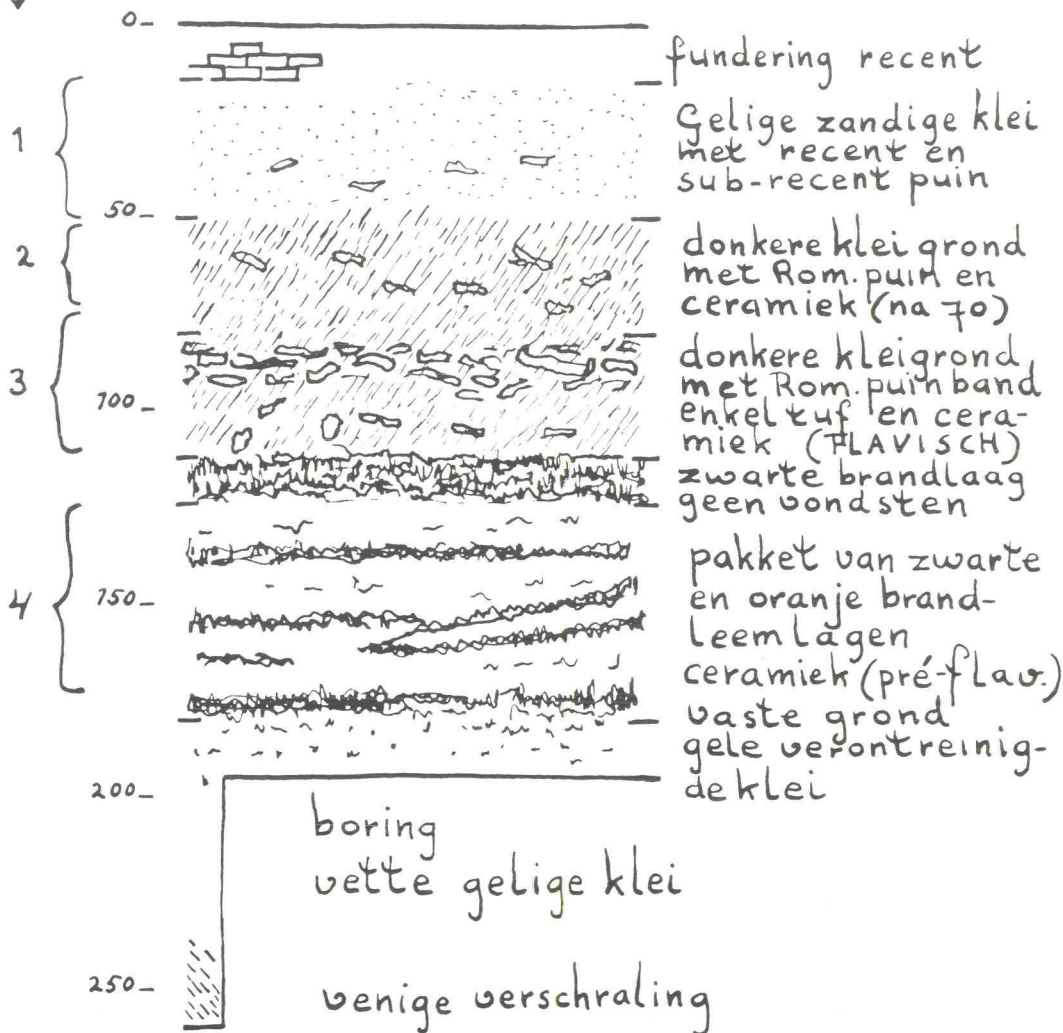 0_
fundering recent
1
Gelige zandige klei
met recent en
sub-recent puin
50_
2
donkere klei grond
met Rom. puin en
ceramiek (na 70)
3
donkere kleigrond
met Rom. puinband
100_
enkel tuf en cera-
miek (FLAVISCH)
zwarte brandlaag
geen vondsten
4
pakket van zwarte
150_
en oranje brand-
leemlagen
ceramiek (pré-flav.)
vaste grond
gele verontreinig-
de klei
200_
boring
vette gelige klei
250_
venige verschraling